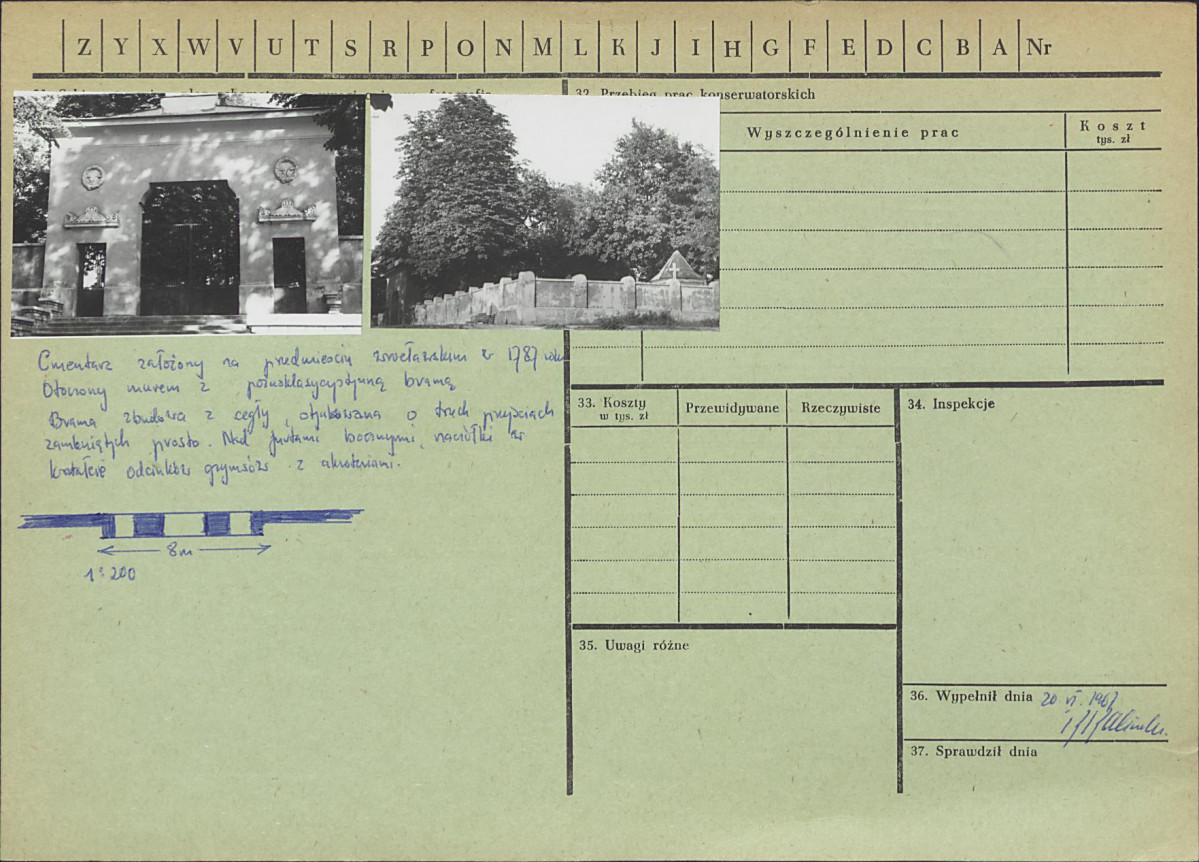 Z Y X W V U T S R P O N M L K J I H G F E D C B A Nr
32. Przebieg prac konserwatorskich
Wyszczególnienie prac
Koszt
tys. zł
Cmentarz założony na przedmieściu w 1787 roku
Otoczony murem z późnoklasycystyczną bramą
Brama zbudowa z cegły, otynkowana o trzech przejściach
zamkniętych prosto. Nad furtami bocznymi naciółki w
kształcie odcinków gzymsów z akroteriami.
8m
1:200
33. Koszty
w tys. zł
Przewidywane
Rzeczywiste
34. Inspekcje
35. Uwagi różne
36. Wypełnił dnia 20 VI. 1967
37. Sprawdził dnia